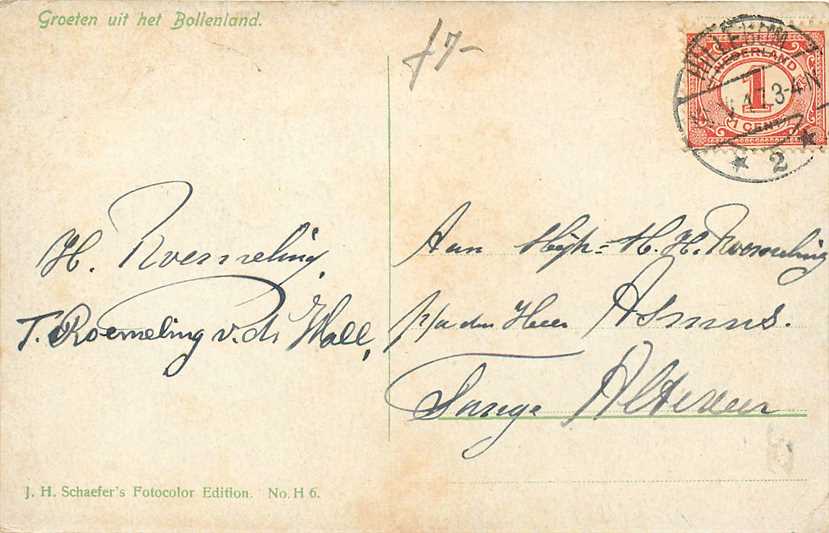 Groeten uit het Bollenland.
f 7-
NEDERLAND
1
1 CENT
HILLEGOM
3-4 N
2
H. Roemeling,
T. Roemeling v. d. Wall,
Aan Mejr. M. H. Roemeling
p/a den Heer Asmus.
Lange Alteveer
J. H. Schaefer's Fotocolor Edition. No. H 6.